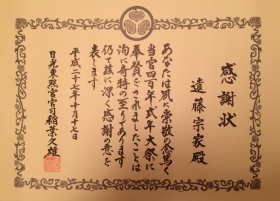 感謝状
遠藤宗家殿
あなたは夙に崇敬の念篤く
当宮四百年式年大祭に
奉賛をされましたことは
洵に奇特の至りであります
仍て茲に深く感謝の意を
表します
平成二十七年十月十七日
日光東照宮宮司稲葉久雄